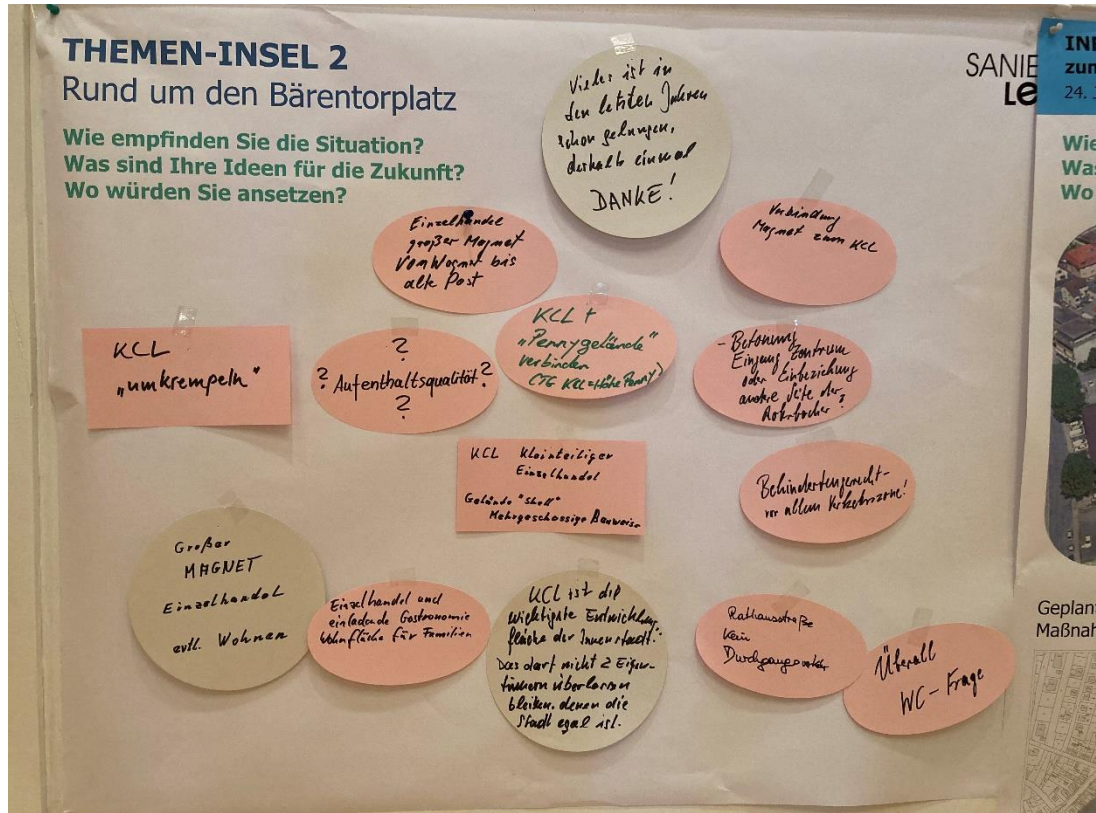 THEMEN-INSEL 2
Rund um den Bärentorplatz
Wie empfinden Sie die Situation?
Was sind Ihre Ideen für die Zukunft?
Wo würden Sie ansetzen?
Vieles ist in
den letzten Jahren
schon gelungen,
deshalb einmal
DANKE!
SANIE
LE
Einzelhandel
großer Magnet
Von Wagner bis
alte Post
Verbindung
Magnet zum KCL
KCL
„umkrempeln“
?
? Aufenthaltsqualität ?
?
KCL +
„Pennygelände“
verbinden
(TG KCL = Höhe Penny)
- Betonung
Eingang Zentrum
oder Einbeziehung
andere Seite der
Rohrbacher?
KCL Kleinteiliger
Einzelhandel
Gelände "Shell"
Mehrgeschossige Bauweise
Behindertengerecht -
vor allem
Großer
MAGNET
Einzelhandel
evtl. Wohnen
Einzelhandel und
einladende Gastronomie
Wohnfläche für Familien
KCL ist die
wichtigste Entwicklungs-
fläche der Innenstadt.
Das darf nicht 2 Eigen-
tümern überlassen
bleiben, denen die
Stadt egal ist.
Rathausstraße
Kein
Durchgangsverkehr
Überall
WC-Frage
zum
24.
Wie
Was
Wo
Geplant
Maßnah